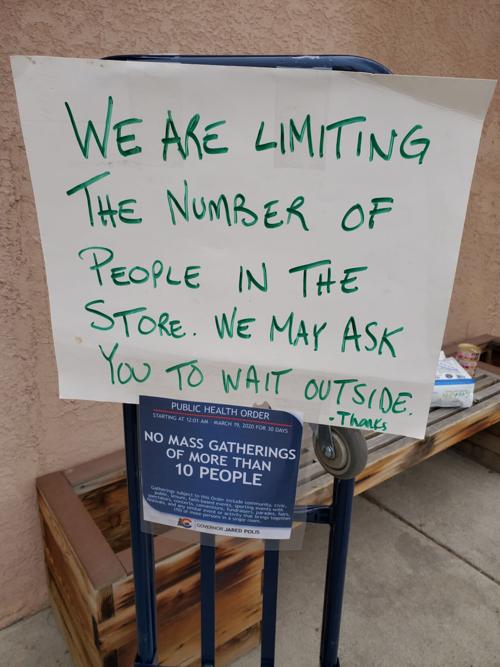 WE ARE LIMITING
THE NUMBER OF
PEOPLE IN THE
STORE. WE MAY ASK
YOU TO WAIT OUTSIDE.
• Thanks
PUBLIC HEALTH ORDER
STARTING AT 12:01 AM - MARCH 19, 2020 FOR 30 DAYS
NO MASS GATHERINGS
OF MORE THAN
10 PEOPLE
Gatherings subject to this Order include community, civic,
public, leisure, faith-based events, sporting events with
spectators, concerts, conventions, fundraisers, parades, fairs,
festivals, and any similar event or activity that brings together
(10) or more persons in a single room.
GOVERNOR JARED POLIS